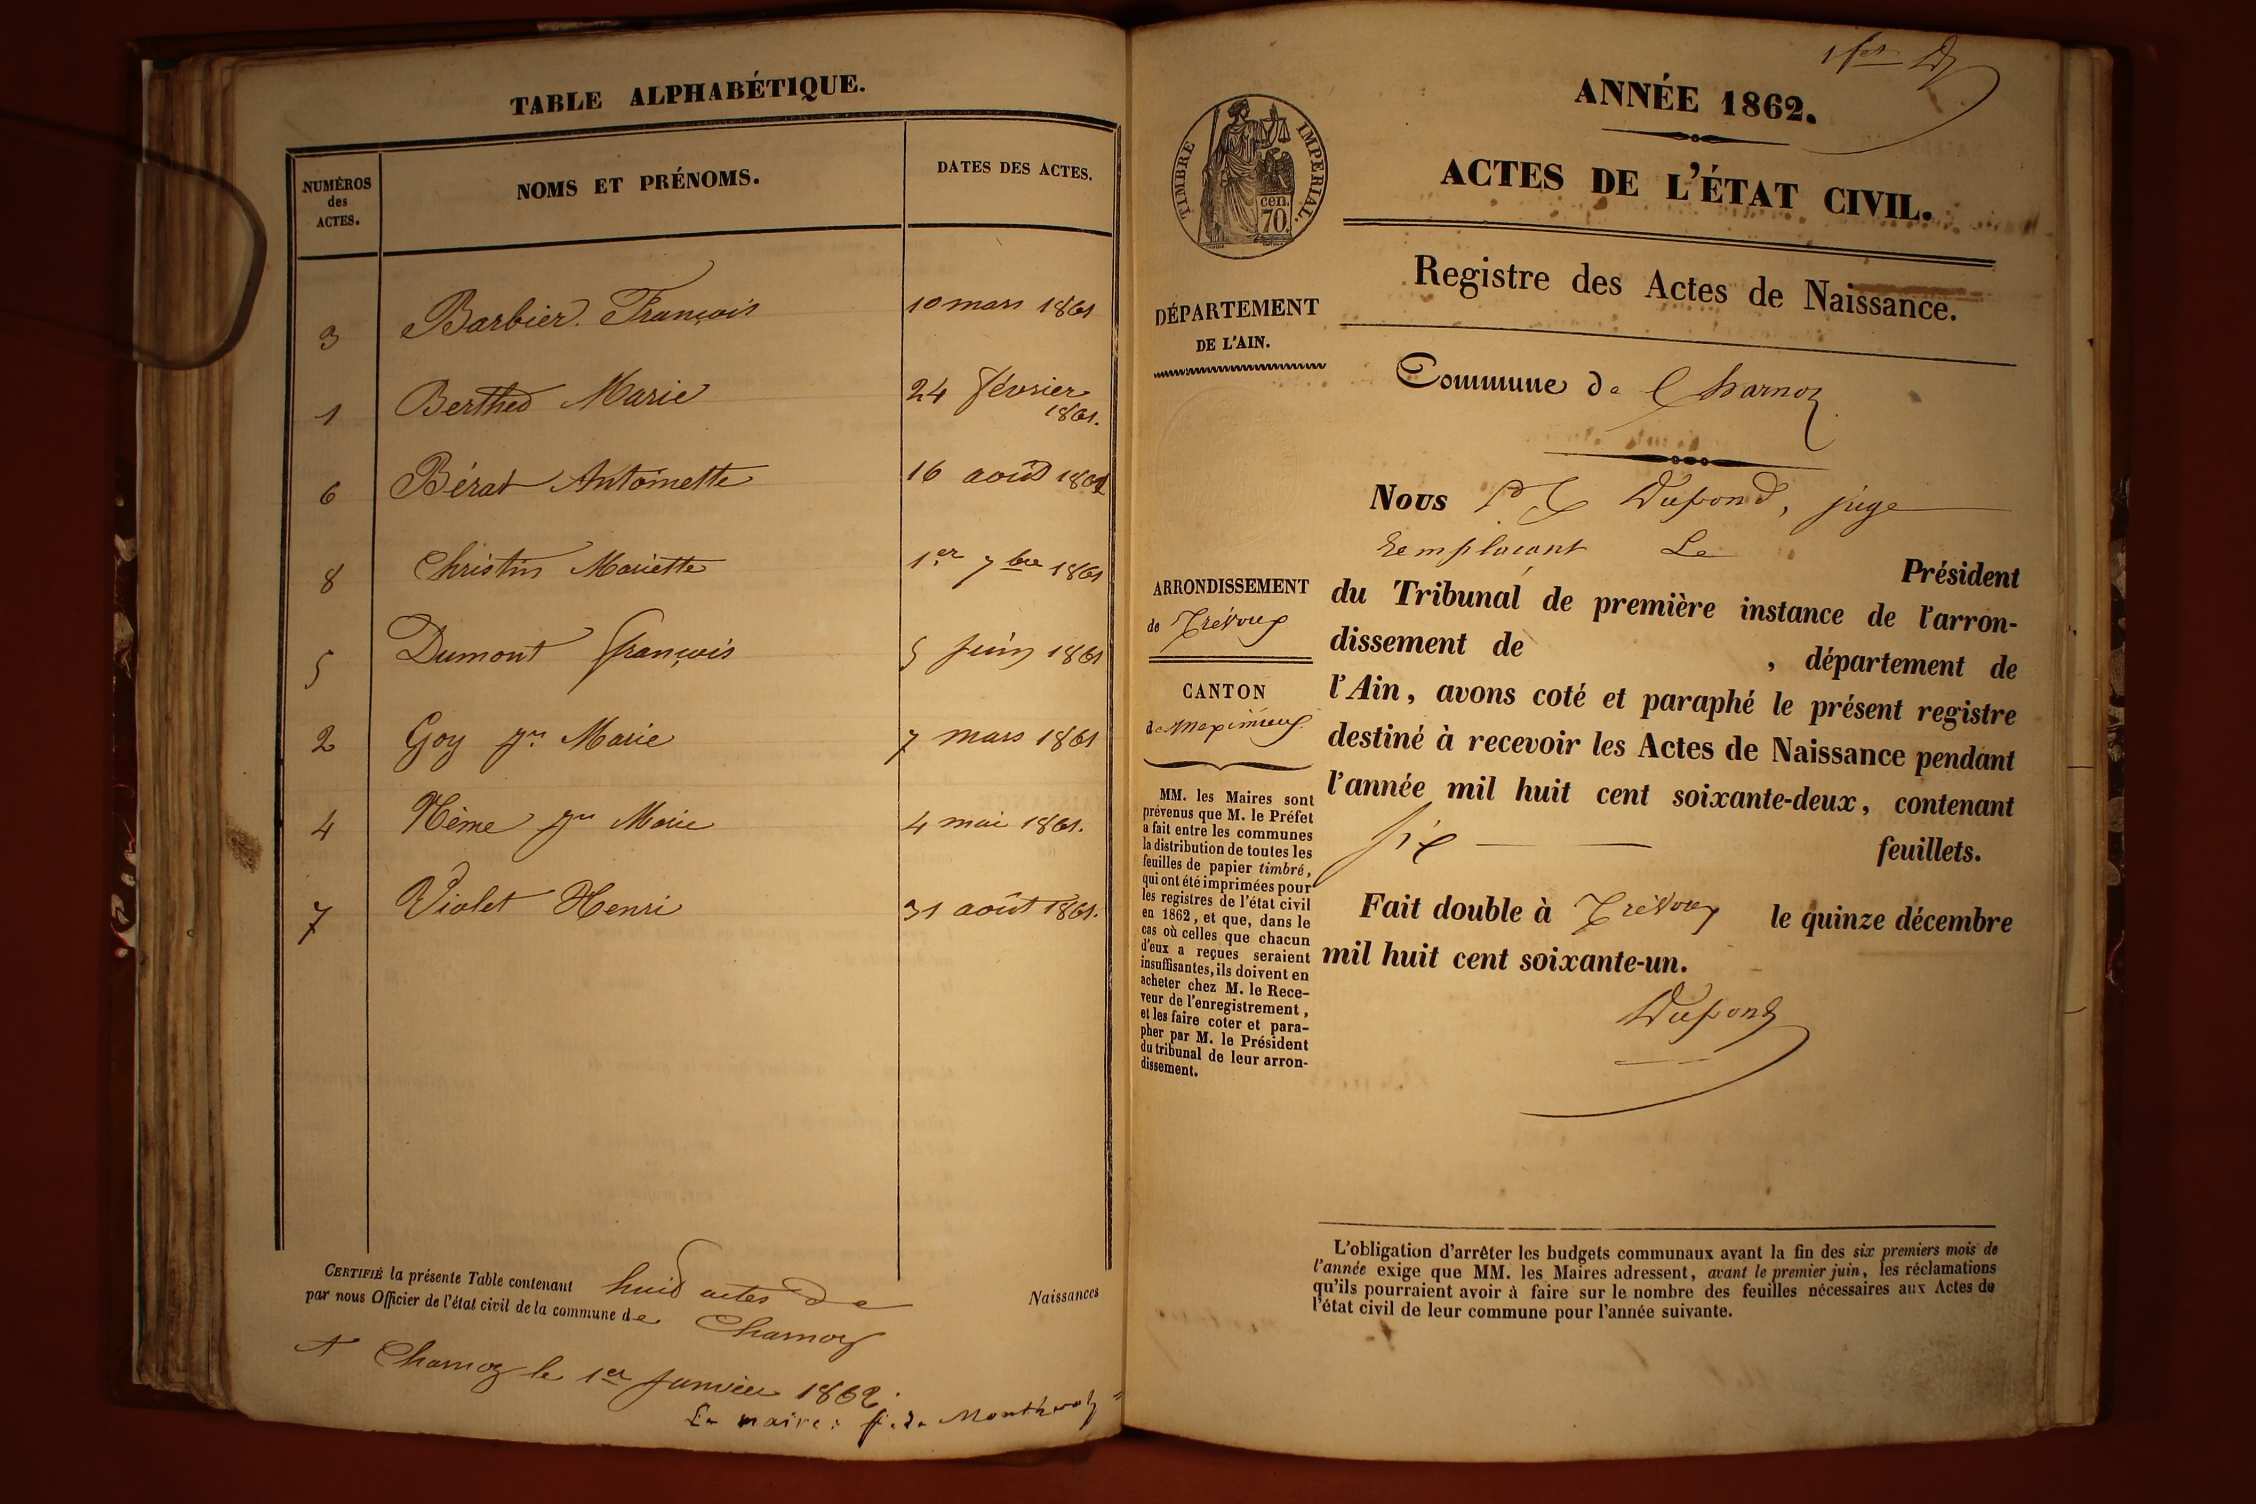 TABLE ALPHABÉTIQUE.
NUMÉROS
des
ACTES.
NOMS ET PRÉNOMS.
DATES DES ACTES.
3 Barbier François 10 mars 1861
1 Berthed Marie 24 février
1861.
6 Bérat Antoinette 16 août 1861
8 Christin Mariette 1er 7bre 1861
5 Dumont françois 5 juin 1861
2 Goy Marie 7 mars 1861
4 Marie 4 mai 1861.
7 Violet Henri 31 août 1861.
CERTIFIÉ la présente Table contenant huid actes de Naissances
par nous Officier de l'état civil de la commune de Charnoz
A Charnoz le 1er Janvier 1862.
Le maire:
1er
ANNÉE 1862.
ACTES DE L'ÉTAT CIVIL.
Registre des Actes de Naissance.
TIMBRE IMPERIAL.
cen.
70.
DÉPARTEMENT
DE L'AIN.
Commune de Charnoz
Nous Dupond, juge
remplacant Le Président
du Tribunal de première instance de l'arron-
dissement de , département de
l'Ain, avons coté et paraphé le présent registre
destiné à recevoir les Actes de Naissance pendant
l'année mil huit cent soixante-deux, contenant
six feuillets.
Fait double à Trévoux le quinze décembre
mil huit cent soixante-un.
Dupond
ARRONDISSEMENT
de Trévoux
CANTON
de Meximieux
MM. les Maires sont
prévenus que M. le Préfet
a fait entre les communes
la distribution de toutes les
feuilles de papier timbré,
qui ont été imprimées pour
les registres de l'état civil
en 1862, et que, dans le
cas où celles que chacun
d'eux a reçues seraient
insuffisantes, ils doivent en
acheter chez M. le Rece-
veur de l'enregistrement,
et les faire coter et para-
pher par M. le Président
du tribunal de leur arron-
dissement.
L'obligation d'arrêter les budgets communaux avant la fin des six premiers mois de
l'année exige que MM. les Maires adressent, avant le premier juin, les réclamations
qu'ils pourraient avoir à faire sur le nombre des feuilles nécessaires aux Actes de
l'état civil de leur commune pour l'année suivante.